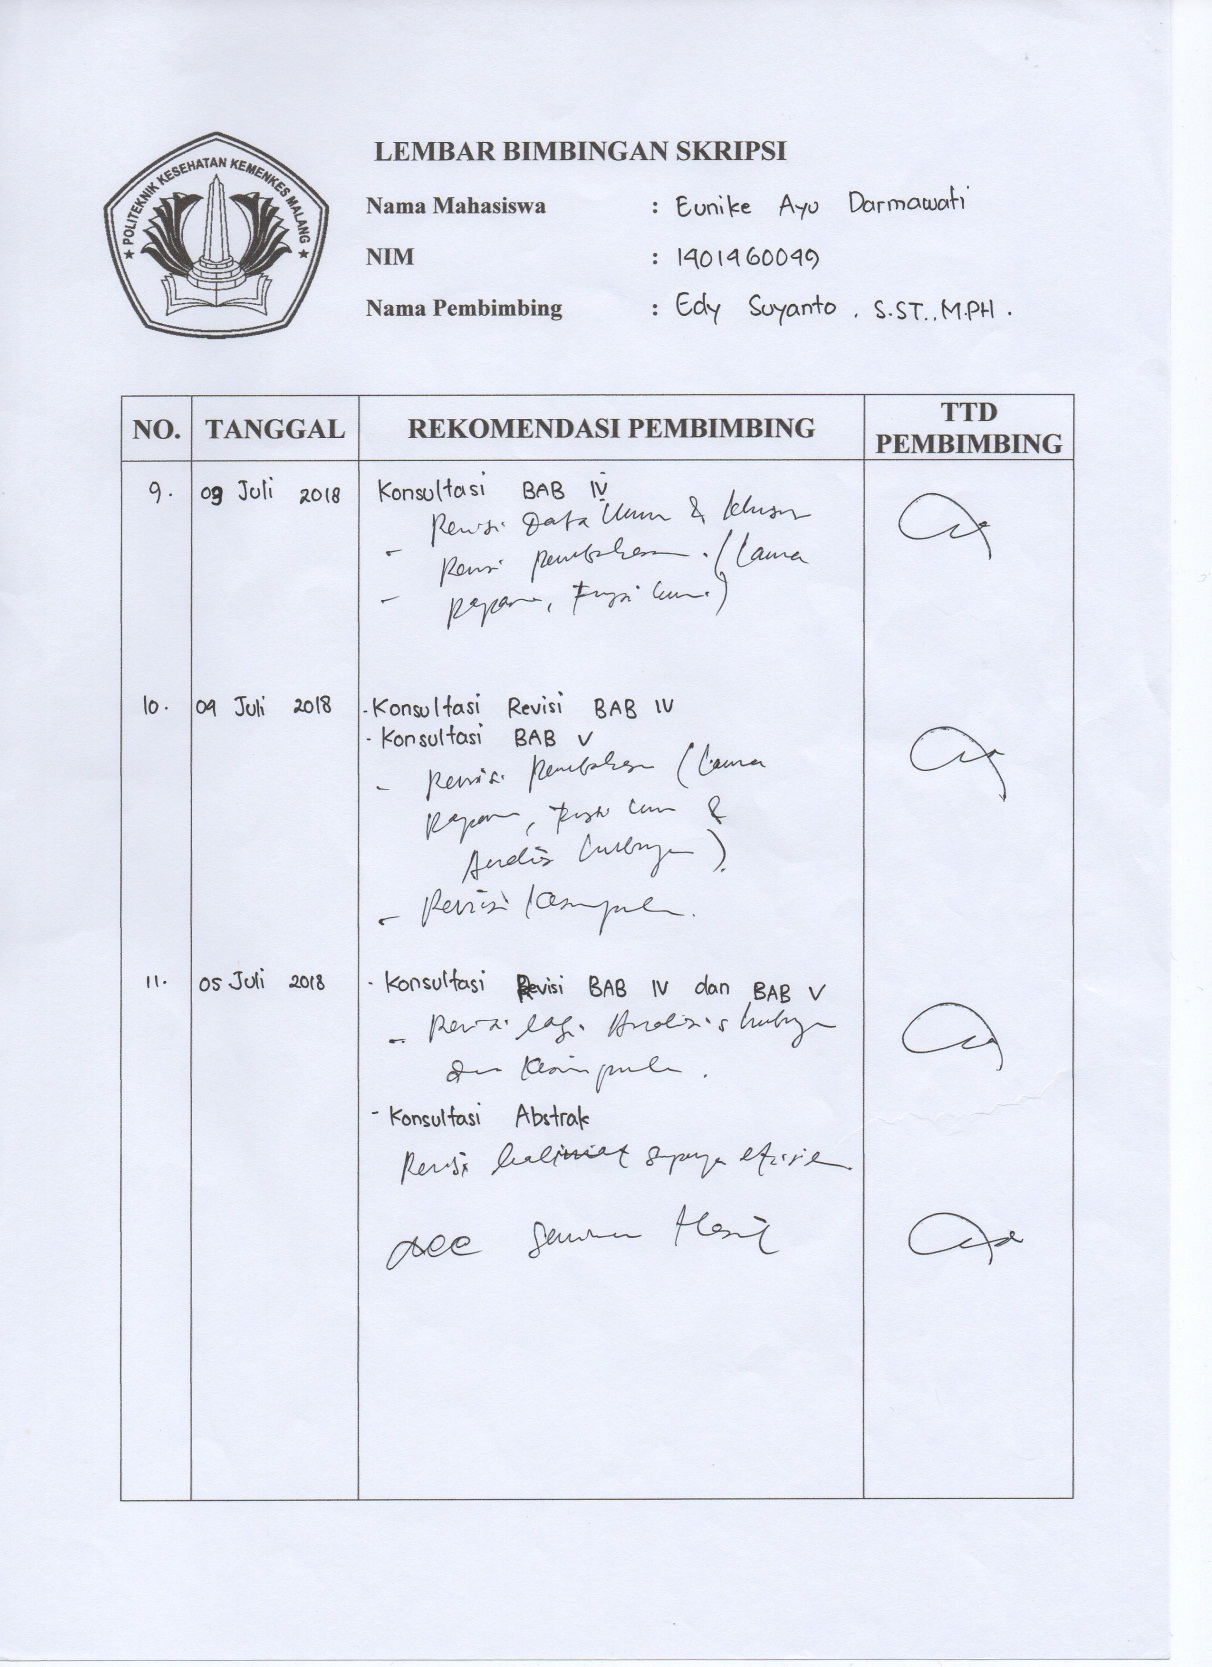 POLITEKNIK KESEHATAN KEMENKES MALANG
LEMBAR BIMBINGAN SKRIPSI
Nama Mahasiswa : Eunike Ayu Darmawati
NIM : 1401460049
Nama Pembimbing : Edy Suyanto, S.ST., M.PH.
NO. TANGGAL REKOMENDASI PEMBIMBING TTD PEMBIMBING
9. 03 Juli 2018 Konsultasi BAB IV
Revisi Data Umum & khusus
- Revisi pembahasan (Lama
-
10. 04 Juli 2018 - Konsultasi Revisi BAB IV
- Konsultasi BAB V
- Revisi pembahasan (Lama
&
Analisis hubungan).
- Revisi kesimpulan.
11. 05 Juli 2018 - Konsultasi Revisi BAB IV dan BAB V
- Revisi lagi Analisis hubungan
dan kesimpulan.
- Konsultasi Abstrak
Revisi kalimat supaya efisien.
acc Seminar Hasil